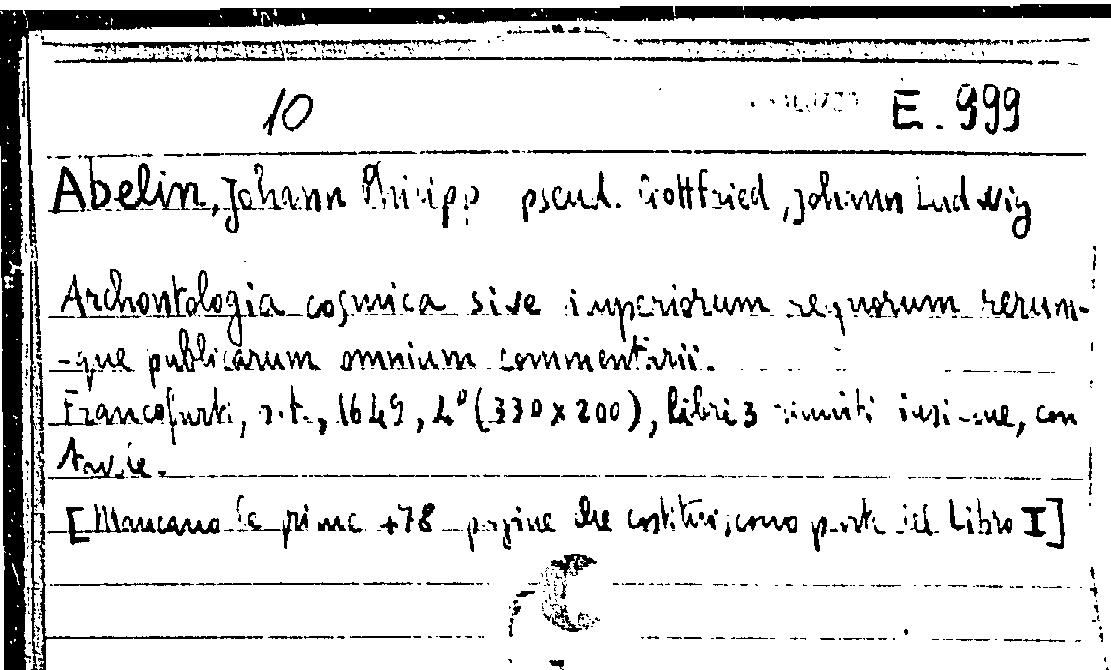 10 E. 999
Abelin, Johann Philipp pseud. Gottfried, Johann Ludwig
Archontologia cosmica sive imperiorum regnorum rerum-
-que publicarum omnium commentarii.
Francofurti, s.t., 1649, 4° (330 x 200), libri 3 riuniti insieme, con
tavole.
[Mancano le prime 478 pagine che costituiscono parte del Libro I]